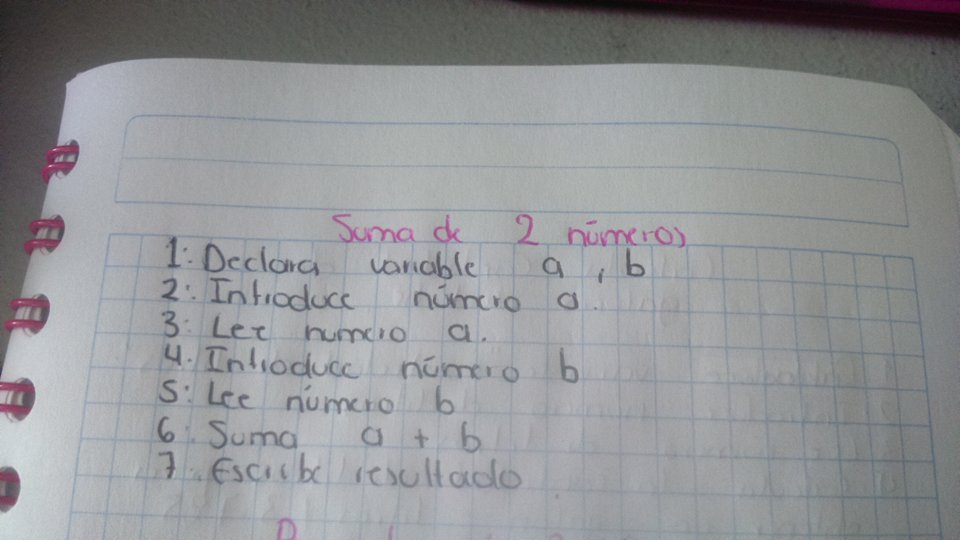 Suma de 2 números
1: Declara variable a, b
2: Introduce número a.
3: Lee numero a.
4. Introduce número b
5: Lee número b
6: Suma a + b
7. Escribe resultado